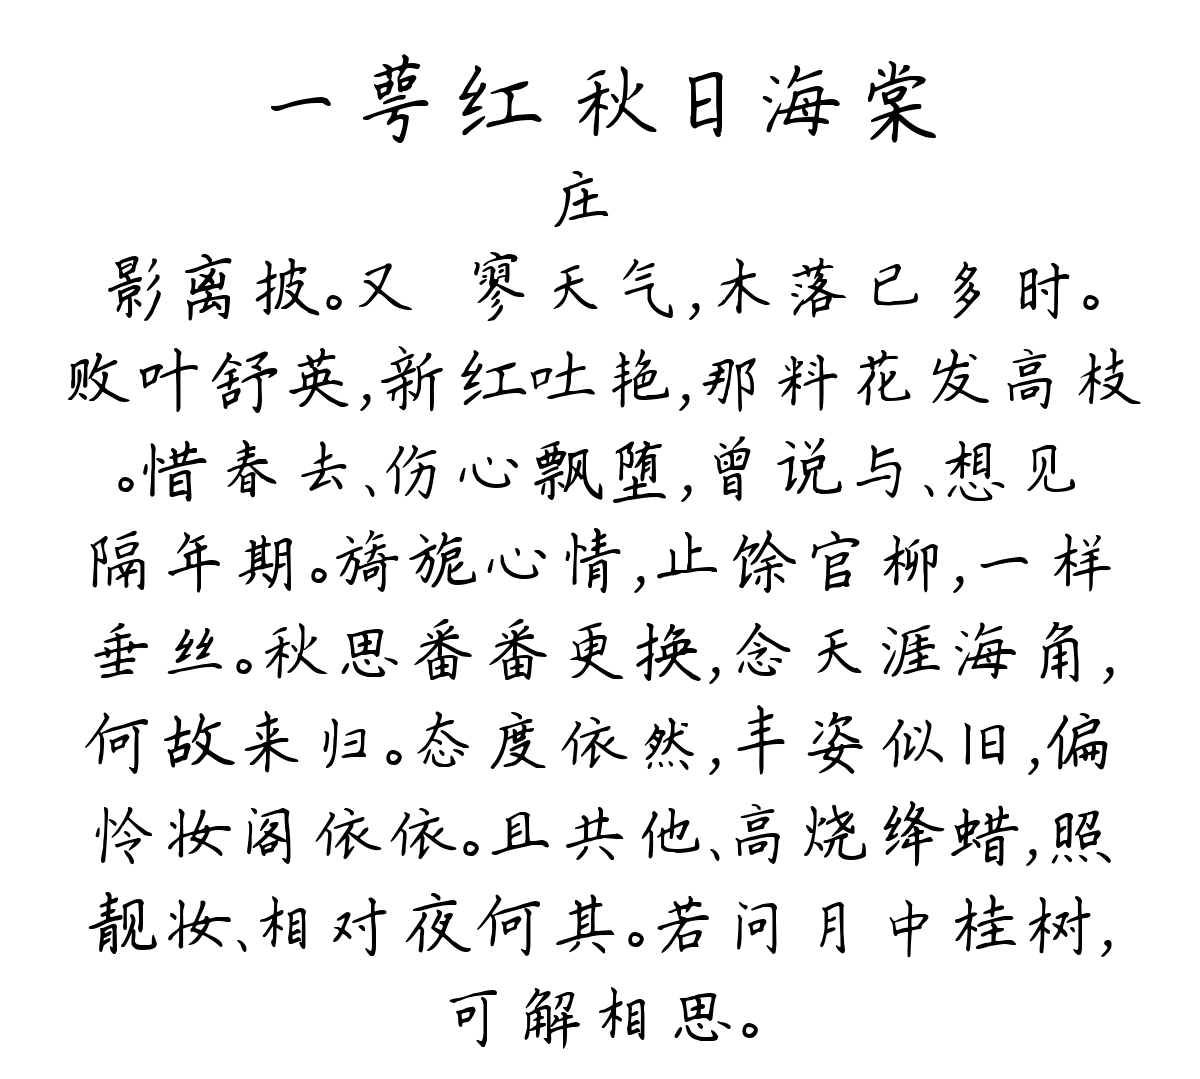 一萼红 秋日海棠
庄
影离披。又 寥天气,木落已多时。
败叶舒英,新红吐艳,那料花发高枝
。惜春去、伤心飘堕,曾说与、想见
隔年期。旖旎心情,止馀官柳,一样
垂丝。秋思番番更换,念天涯海角,
何故来归。态度依然,丰姿似旧,偏
怜妆阁依依。且共他、高烧绛蜡,照
靓妆、相对夜何其。若问月中桂树,
可解相思。